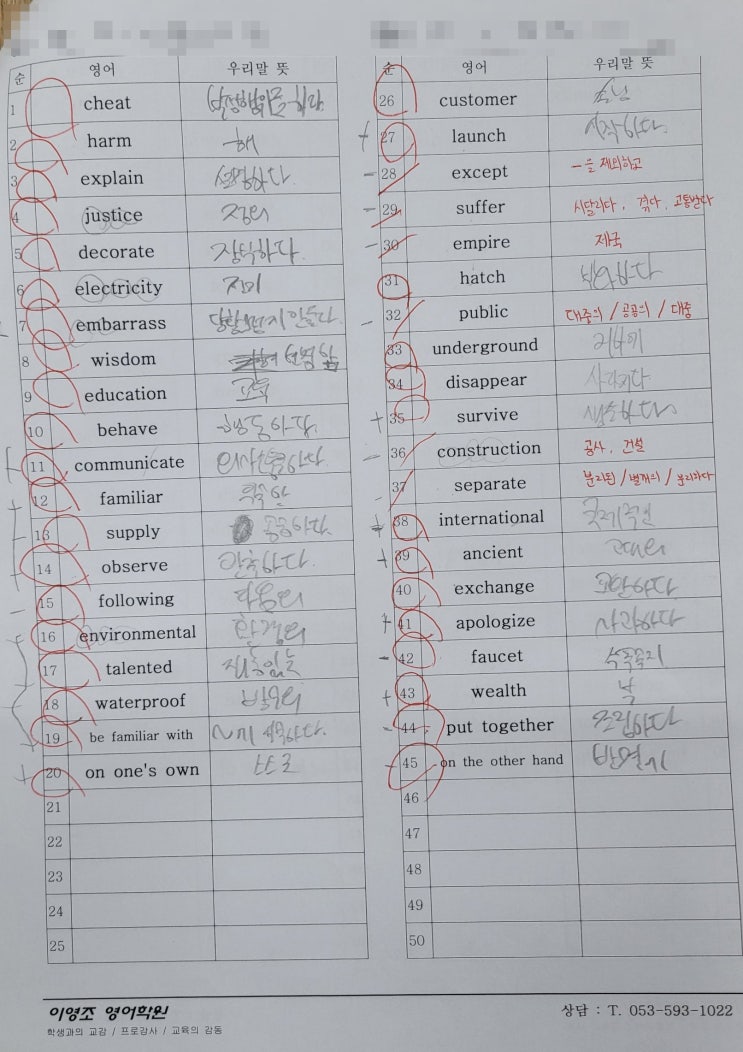 순 영어 우리말 뜻
1 cheat 부정행위를 하다.
2 harm 해
3 explain 설명하다.
4 justice 정의
5 decorate 장식하다.
6 electricity 전기
7 embarrass 당황
8 wisdom
9 education 교육
10 behave 행동하다.
11 communicate 의사소통하다.
12 familiar 익숙한
13 supply 공급하다.
14 observe 관측하다.
15 following 다음의
16 environmental 환경의
17 talented 재능있는
18 waterproof 방수의
19 be familiar with
20 on one's own 스스로
21
22
23
24
25
순 영어 우리말 뜻
26 customer 손님
27 launch 시작하다.
28 except ~을 제외하고
29 suffer 시달리다. 겪다. 고통받다
30 empire 제국
31 hatch 부화하다
32 public 대중의 / 공공의 / 대중
33 underground 지하에
34 disappear 사라지다.
35 survive 생존하다
36 construction 공사. 건설
37 separate 분리된 / 별개의 / 분리하다
38 international 국제적인
39 ancient 고대의
40 exchange 교환하다
41 apologize 사과하다
42 faucet 수도꼭지
43 wealth 부
44 put together 조립하다
45 on the other hand 반면에
46
47
48
49
50
이영조 영어학원
학생과의 교감 / 프로강사 / 교육의 감동
상담 : T. 053-593-1022